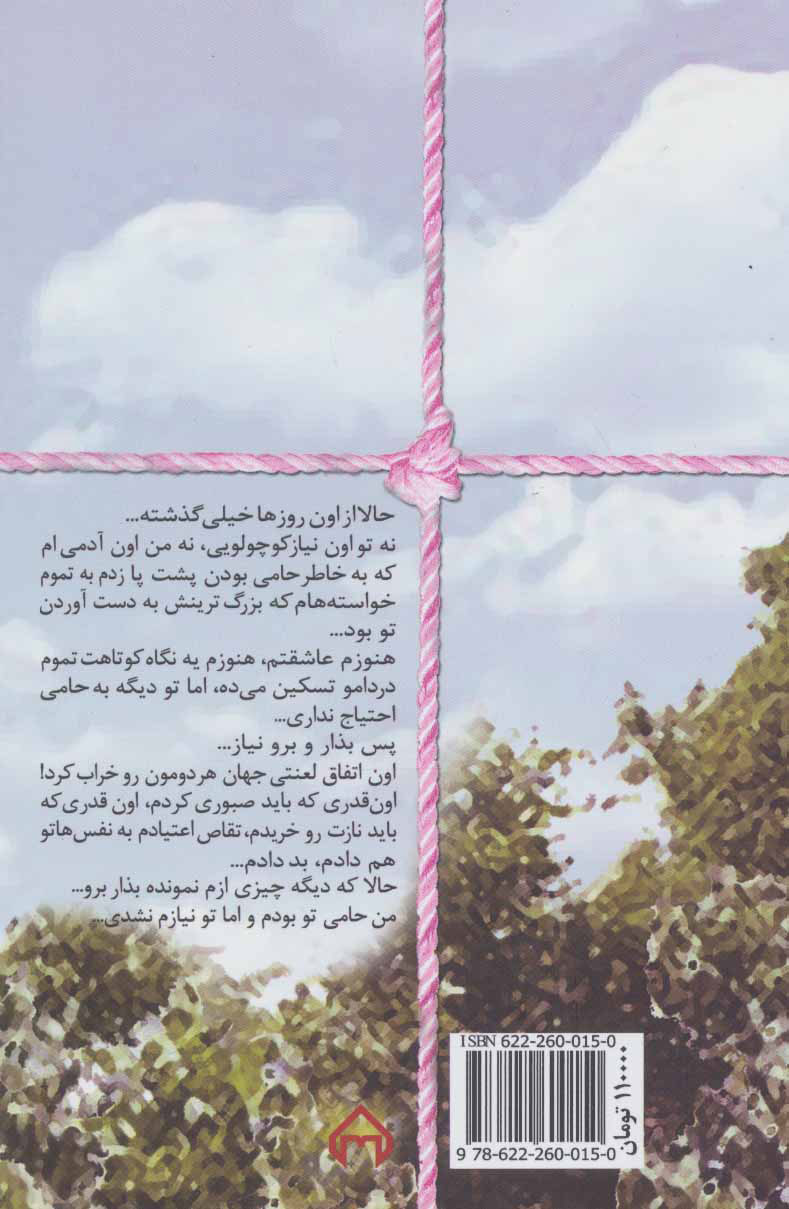 حالا از اون روزها خیلی گذشته...
نه تو اون نیاز کوچولویی، نه من اون آدمی ام
که به خاطر حامی بودن پشت پا زدم به تموم
خواسته‌هام که بزرگ ترینش به دست آوردن
تو بود...
هنوزم عاشقتم، هنوزم یه نگاه کوتاهت تموم
دردامو تسکین می‌ده، اما تو دیگه به حامی
احتیاج نداری...
پس بذار و برو نیاز...
اون اتفاق لعنتی جهان هردومون رو خراب کرد!
اون‌قدری که باید صبوری کردم، اون قدری که
باید نازت رو خریدم، تقاص اعتیادم به نفس‌هاتو
هم دادم، بد دادم...
حالا که دیگه چیزی ازم نمونده بذار برو...
من حامی تو بودم و اما تو نیازم نشدی...
ISBN 622-260-015-0
9 78-622-260-015-0
۱۱۰۰۰۰ تومان